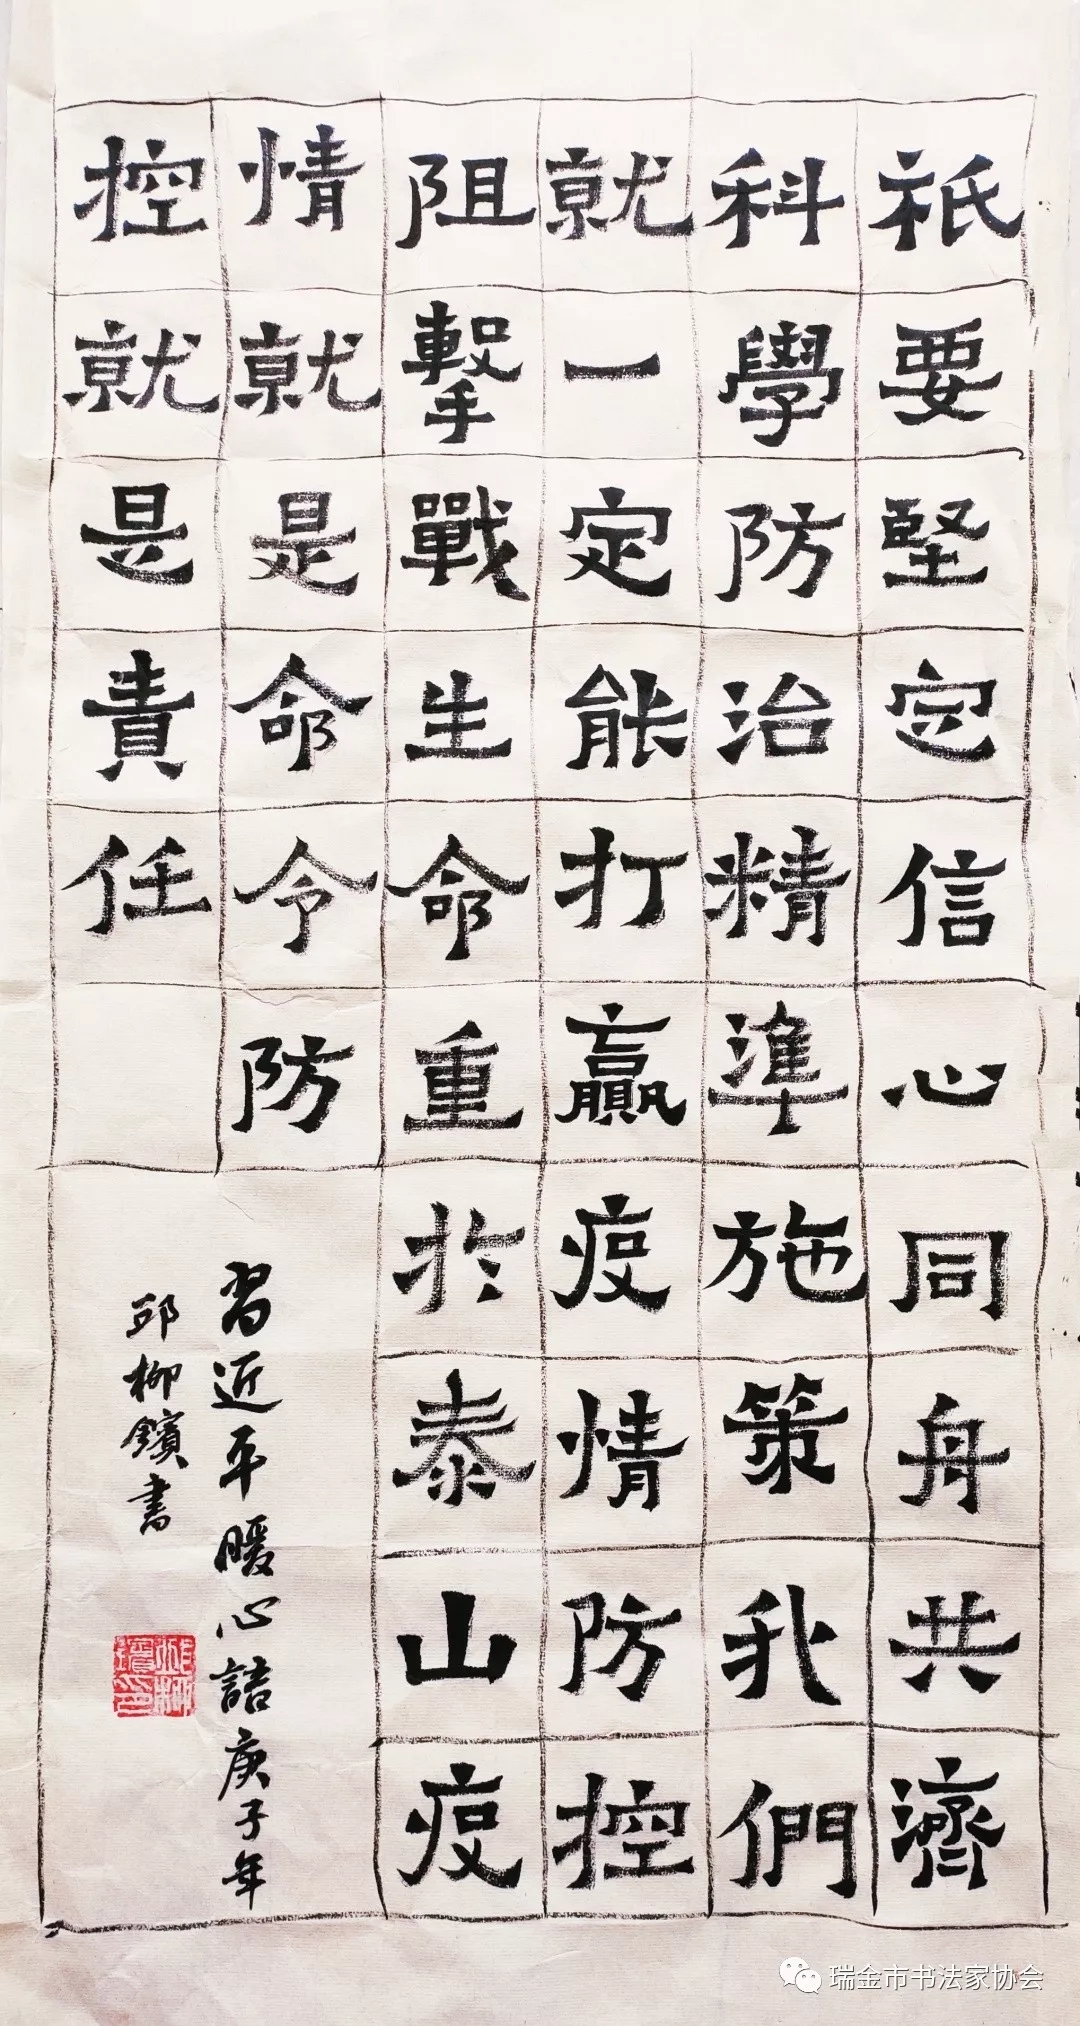 祇要堅定信心同舟共濟
科學防治精準施策我們
就一定能打贏疫情防控
阻擊戰生命重於泰山疫
情就是命令防
控就是責任
習近平暖心語庚子年
邱柳鑌書
瑞金市书法家协会